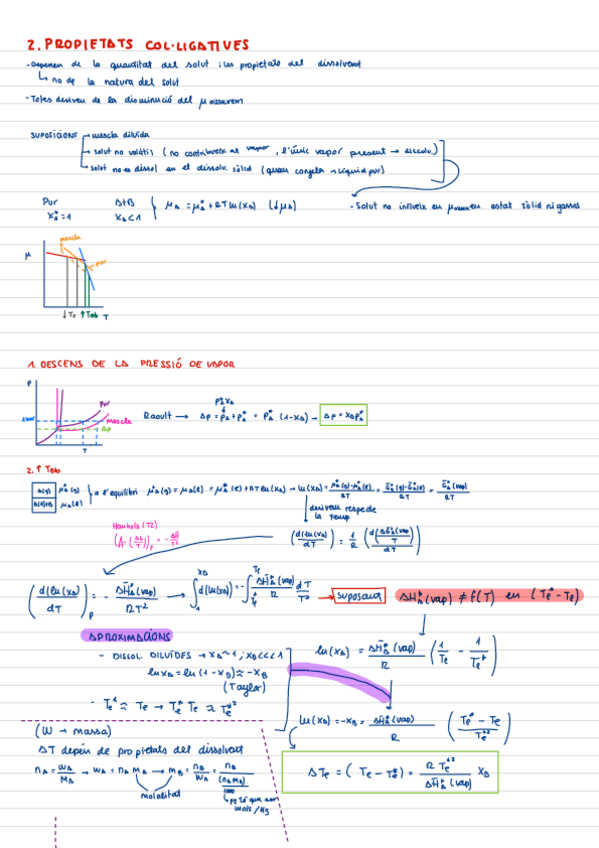 2. PROPIETATS COL·LIGATIVES
- Depenen de la quantitat del solut i les propietats del dissolvent
↳ no de la natura del solut
- Totes deriven de la disminució del μ dissolvent
SUPOSICIONS → mescla diluïda
→ solut no volàtil ( no contribueix al vapor , l'únic vapor present → dissolv.)
→ solut no es dissol en el dissolv. sòlid ( quan congela → líquid pur)
Pur A+B
X*A = 1 XA < 1 } μA = μ*A + RT ln(XA) (↓μA)
- Solut no influeix en μ en estat sòlid ni gasós
mescla
pur
μ
↓Tc ↑Teb T
1. DESCENS DE LA PRESSIÓ DE VAPOR
P
Pur
1 atm
Mescla
ΔP
T
P*A XA
Raoult → ΔP = PA + P*A = P*A (1-XA) → ΔP = XB P*A
2. ↑ Teb
A(g) μ*A (g)
A(l)+B μA(l)
} a l'equilibri μ*A(g) = μA(l) = μ*A (l) + RT ln(XA) → ln(XA) = (μ*A(g) - μ*A(l))/RT = (G*A(g) - G*A(l))/RT = G*A(vap)/RT
derivem respecte la temp
(d(ln(XA))/dT) = 1/R (d(ΔG*A(vap)/T)/dT)
(d(ln(XA))/dT)P = - ΔH*A(vap)/RT² → ∫ d(ln(XA)) = - ∫ ΔH*A(vap)/R dT/T² → suposant ΔH*A(vap) ≠ f(T) en (T*e - Te)
APROXIMACIONS
- DISSOL. DILUÏDES → XA ~ 1 ; XB <<< 1
ln XA = ln(1 - XB) ≈ -XB
(Taylor)
- T*e ≈ Te → T*e Te ≈ T*e²
ln(XA) = ΔH*A(vap)/R (1/Te - 1/T*e)
ln(XA) = -XB = ΔH*A(vap)/R ((T*e - Te)/T*e²)
ΔTe = ( Te - T*e) = R T*e²/ΔH*A(vap) XB
(W → massa)
ΔT depèn de propietats del dissolvent
nA = WA/MA → WA = nA MA → mB = nB/WA = nB/(nA MA)/1000
molalitat
↳ pq té que ser mols/Kg